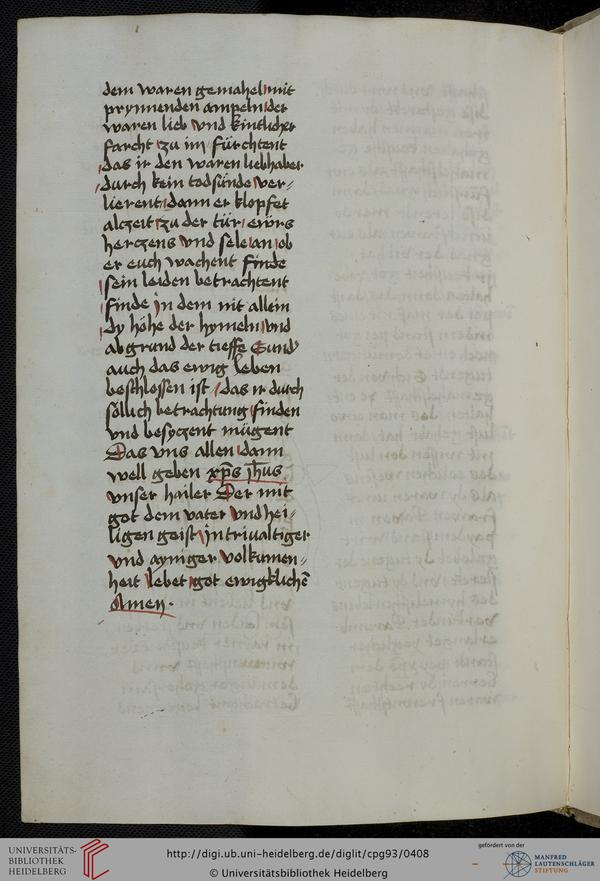 dem waren gemahel mit
prynnenden ampeln der
waren lieb vnd kintlicher
forcht zu im fürchtent
das ir den waren liebhaber
durch kein todsünde ver-
lierent dann er klopfet
alczeit zu der tür ewrs
herczens vnd sele an ob
er euch wachent finde
sein leiden betrachtent
finde in dem nit allein
dy höhe der hymeln vnd
abgrund der tieffe Sund'
auch das ewig leben
beschlossen ist das ir durch
söllich betrachtung finden
vnd besyczent mügent
Das vns allen dann
well geben xp̄s jh̄us
vnser hailer Der mit
got dem vater vnd hei-
ligen geist in trivaltiger
vnd ayniger volkumen-
heit lebet got ewigklichē
Amen.
UNIVERSITÄTS-
BIBLIOTHEK
HEIDELBERG
http://digi.ub.uni-heidelberg.de/diglit/cpg93/0408
© Universitätsbibliothek Heidelberg
gefördert von der
MANFRED
LAUTENSCHLÄGER
STIFTUNG